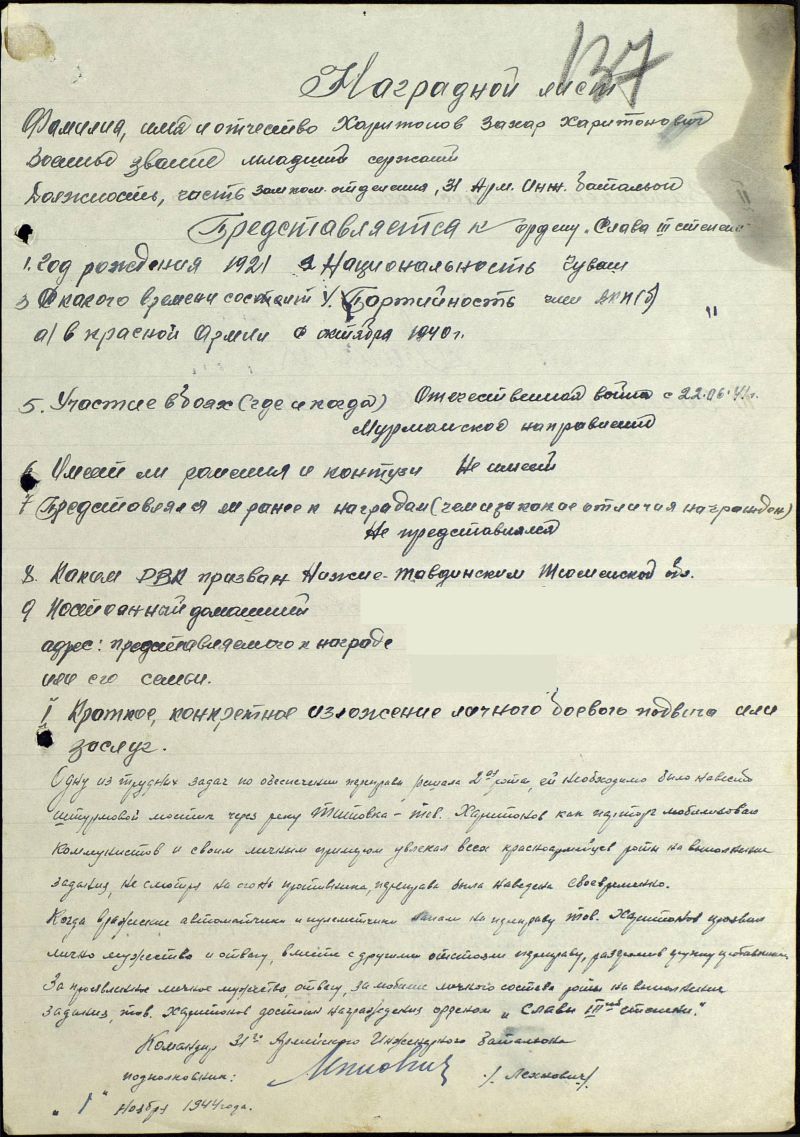 137
Наградной лист
Фамилия, имя и отчество Харитонов Захар Харитонович
Военное звание младший сержант
Должность, часть зам ком. отделения, 31 Арм. Инж. Батальон
Представляется к ордену „Слава III степени
1. Год рождения 1921 2 Национальность Чуваш
3 С какого времени состоит 4. Партийность член ВКП(б)
а) в красной Армии с октября 1940 г. "
5. Участие в боях (где и когда) Отечественная война с 22.06.41г.
Мурманское направление
6 Имеет ли ранения и контузи Не имеет
7 Представлялся ли ранее к наградам (чем и за какие отличия награжден)
Не представлялся
8. Каким РВК призван Нижне-Тавдинским Тюменской обл.
9 Постоянный домашний
адрес: представляемого к награде
или его семьи.
I Краткое, конкретное изложение личного боевого подвига или
заслуг.
Одну из трудных задач по обеспечении переправы решала 2ая рота, ей необходимо было навести
штурмовой мостик через реку Титовка – тов. Харитонов как парторг мобилизовал
коммунистов и своим личным примером увлекал всех красноармейцев роты на выполнение
задания, не смотря на огонь противника, переправа была наведена своевременно.
Когда вражеские автоматчики и пулеметчики напали на переправу тов. Харитонов проявил
лично мужество и отвагу, вместе с другими отстояли переправу, разгромив группу
За проявленное личное мужество, отвагу, за мобилиз личного состава роты на выполнение
задания, тов. Харитонов достоин награждения орденом „Славы IIIей степени."
Командир 31го Армейского Инженерного Батальона
подполковник: /Лехнович/.
„1" Ноября 1944 года.